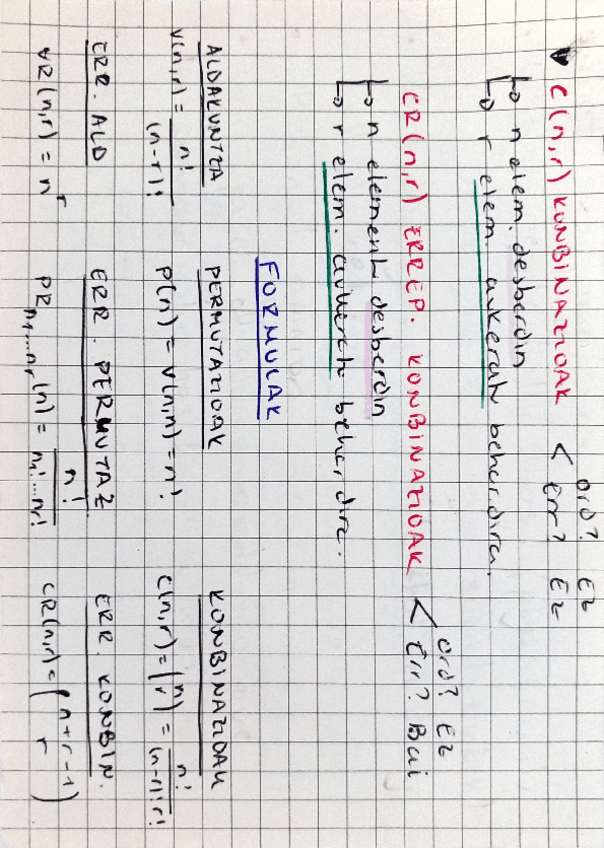 ▼ C(n,r) KONBINAZIOAK < ord? Ez
Err? Ez
↳ n elem. desberdin
↳ r elem. aukeratu behar dira.
CR(n,r) ERREP. KONBINAZIOAK < ord? Ez
Err? Bai
↳ n element desberdin
↳ r elem. aukeratu behar dira.
FORMULAK
ALDAKUNTZA PERMUTAZIOAK KONBINAZIOAK
V(n,r) = n!/(n-r)! P(n) = V(n,n) = n! C(n,r) = (n r) = n!/(n-r)!r!
ERR. ALD ERR. PERMUTAZ ERR. KONBIN.
VR(n,r) = n^r PR n1...nr (n) = n!/n1!...nr! CR(n,r) = (n+r-1 r)